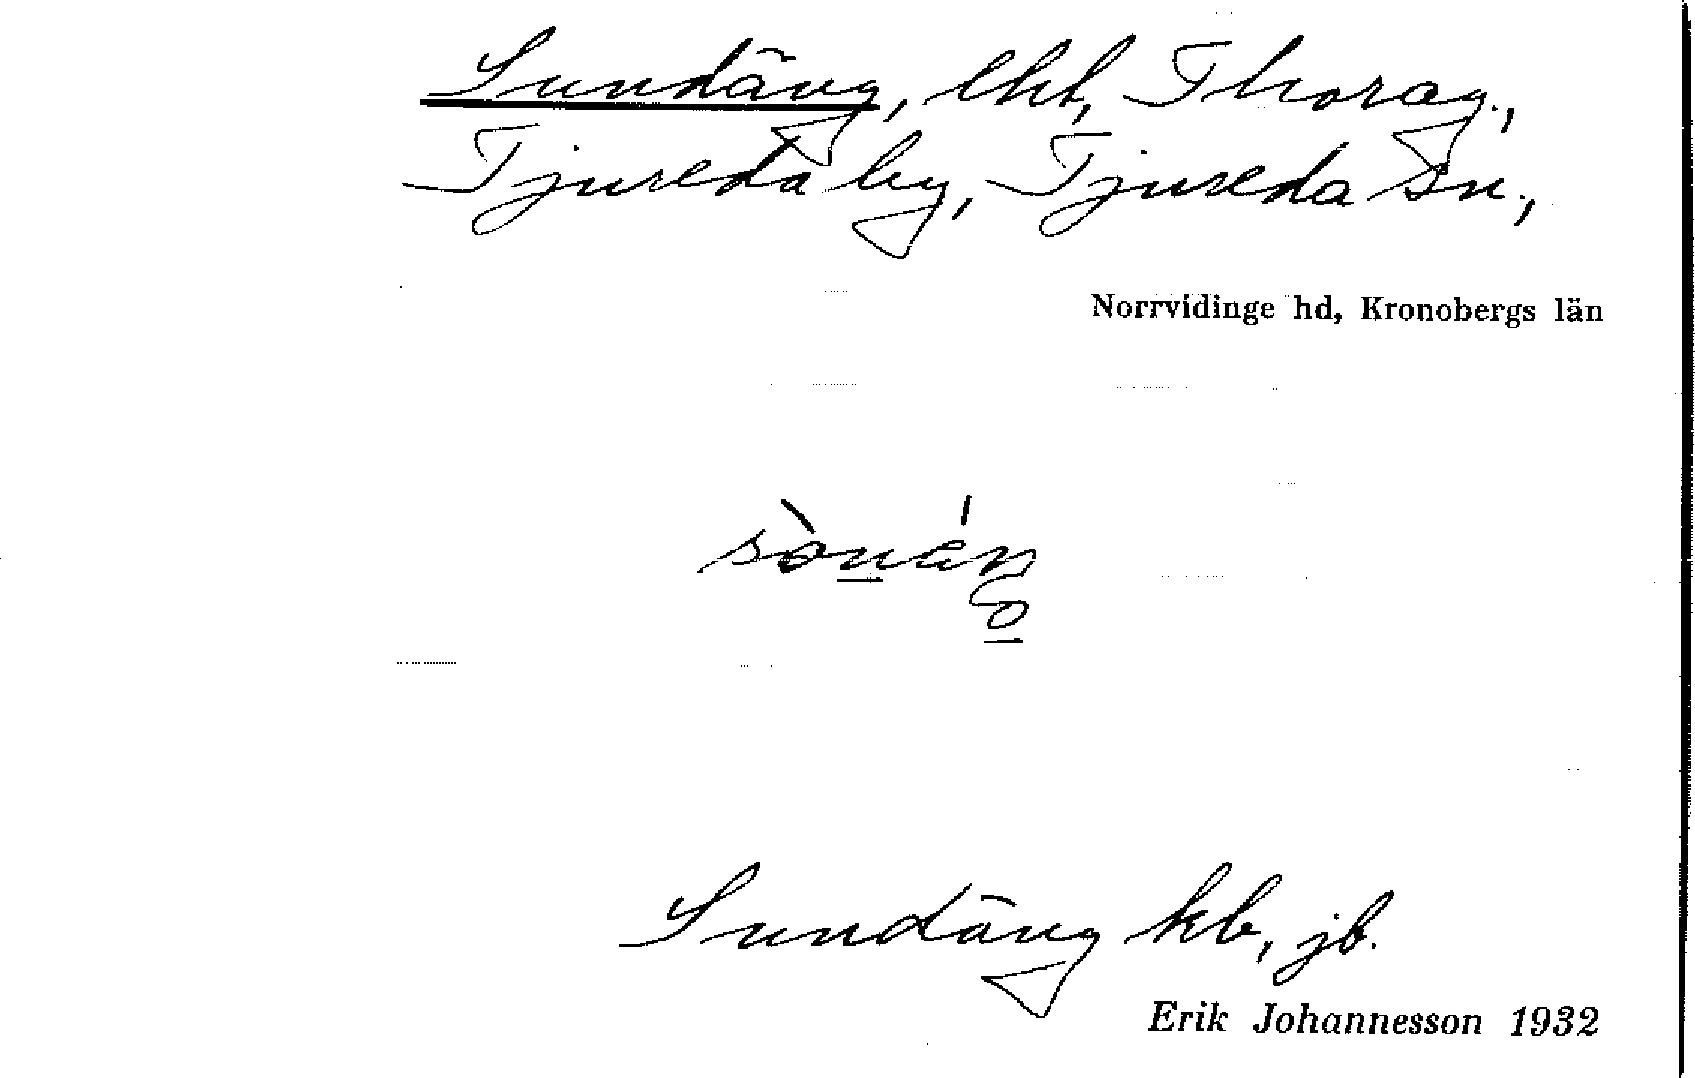 Sundäng, lht, Thorag.,
Tjureda by, Tjureda sn.,
Norrvidinge hd, Kronobergs län
Sundäng kb, jb.
Erik Johannesson 1932